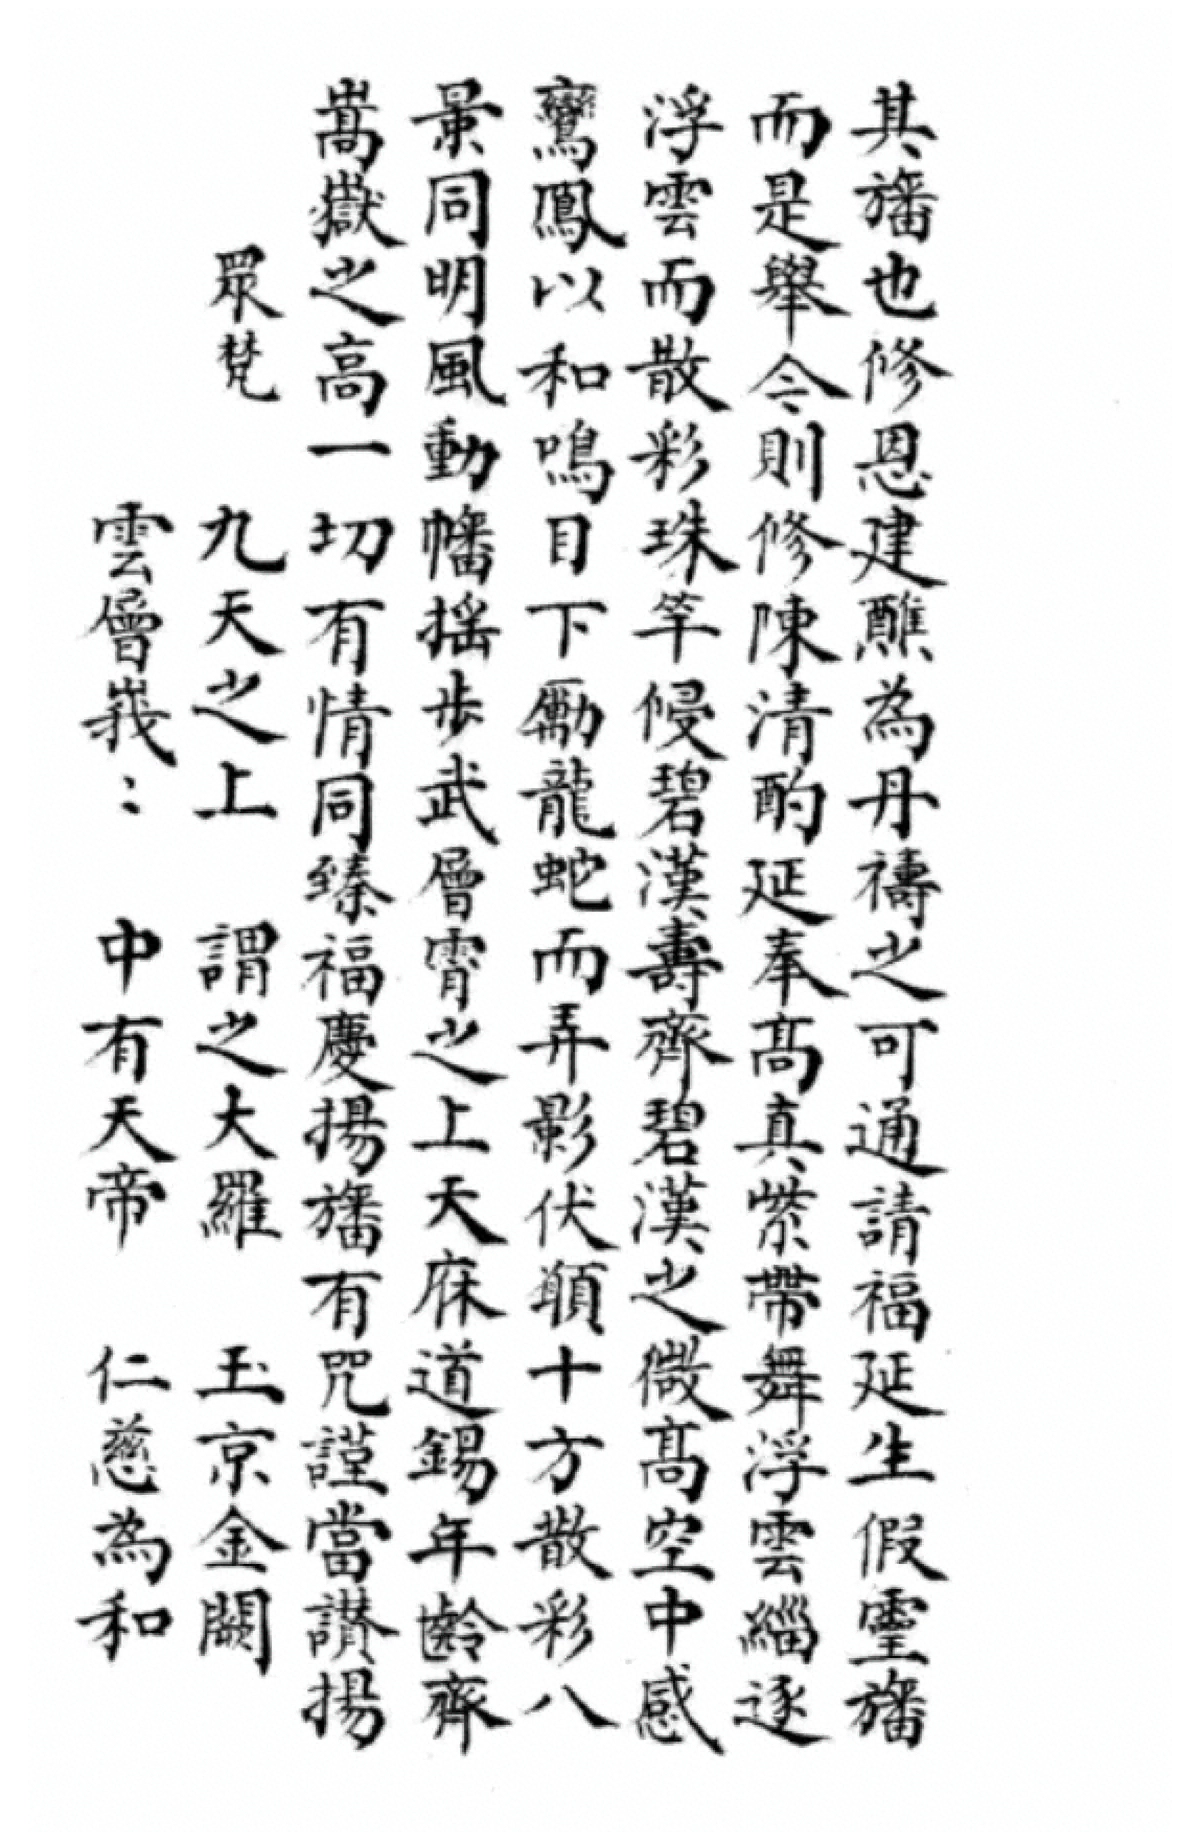 其旛也修恩建醮為丹禱之可通請福延生假霊旛
而是舉令則修陳清酌延奉髙真紫帶舞浮雲緇逐
浮雲而散彩珠竿侵碧漢壽齊碧漢之微髙空中感
鸞鳳以和鳴目下勵龍蛇而弄影伏願十方散彩八
景同明風動幡揺步武層霄之上天庥道錫年齡齊
嵩嶽之高一切有情同臻福慶揚旛有咒謹當讃揚
眾梵 九天之上 謂之大羅 玉京金闕
雲層峩： 中有天帝 仁慈為和